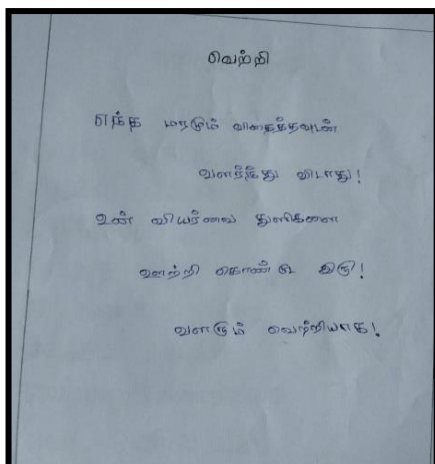 வெற்றி
எந்த மரமும் விதைத்தவுடன்
வளர்ந்து விடாது!
உன் வியர்வை துளிகளை
ஊற்றி கொண்டே இரு!
வளரும் வெற்றியாக!